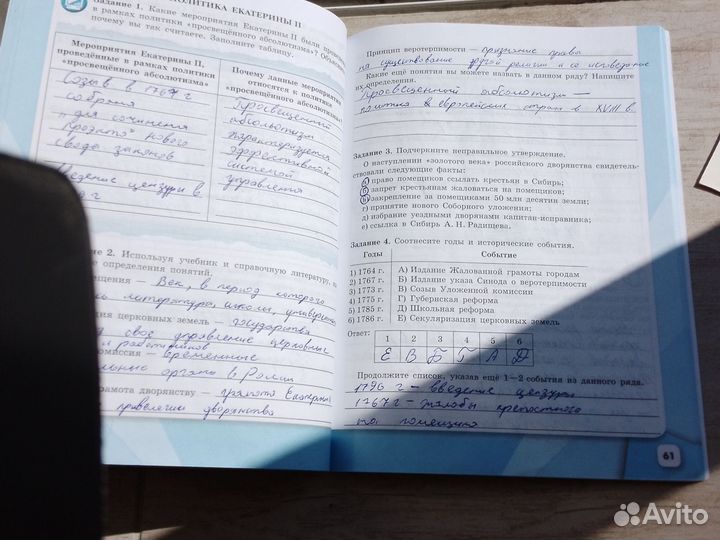 ПОЛИТИКА ЕКАТЕРИНЫ II
Задание 1. Какие мероприятия Екатерины II были проведены
в рамках политики «просвещённого абсолютизма»? Объясните,
почему вы так считаете. Заполните таблицу.
Мероприятия Екатерины II,
проведённые в рамках политики
«просвещённого абсолютизма»
Почему данные мероприятия
относятся к политике
«просвещённого абсолютизма»
Созыв в 1767 г
собрания
"для сочинения
проэкта" нового
свода законов
Введение цензуры в
г
Просвещенный
абсолютизм
характеризуется
эффективной
системой
управления
2. Используя учебник и справочную литературу,
определения понятий.
— Век, в период которого
литературы, школы,
церковных земель — государства
свое управление церковных
работников
комиссия — временные
органы в России
грамота дворянству — грамота Екатерины
привелегии дворянства
Принцип веротерпимости — признание права
на существование другой религии и ее исповедание
Какие ещё понятия вы можете назвать в данном ряду? Напишите
их определения.
Просвещенный абсолютизм —
политика в европейских странах в XVIII в.
Задание 3. Подчеркните неправильное утверждение.
О наступлении «золотого века» российского дворянства свидетель-
ствовали следующие факты:
а) право помещиков ссылать крестьян в Сибирь;
б) запрет крестьянам жаловаться на помещиков;
в) закрепление за помещиками 50 млн десятин земли;
г) принятие нового Соборного уложения;
д) избрание уездными дворянами капитан-исправника;
е) ссылка в Сибирь А. Н. Радищева.
Задание 4. Соотнесите годы и исторические события.
Годы Событие
1) 1764 г. А) Издание Жалованной грамоты городам
2) 1767 г. Б) Издание указа Синода о веротерпимости
3) 1773 г. В) Созыв Уложенной комиссии
4) 1775 г. Г) Губернская реформа
5) 1785 г. Д) Школьная реформа
6) 1786 г. Е) Секуляризация церковных земель
Ответ:
1 2 3 4 5 6
Е В Б Г А Д
Продолжите список, указав ещё 1—2 события из данного ряда.
1796 г — введение цензуры
1767 г — жалобы крепостного
на помещика
61
Avito